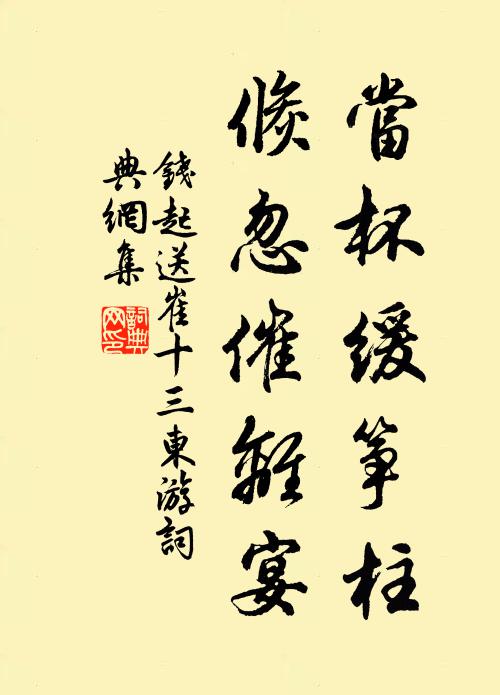 當杯緩箏柱
倐忽催離宴
錢起送崔十三東游詞
典網集
詞典
网印